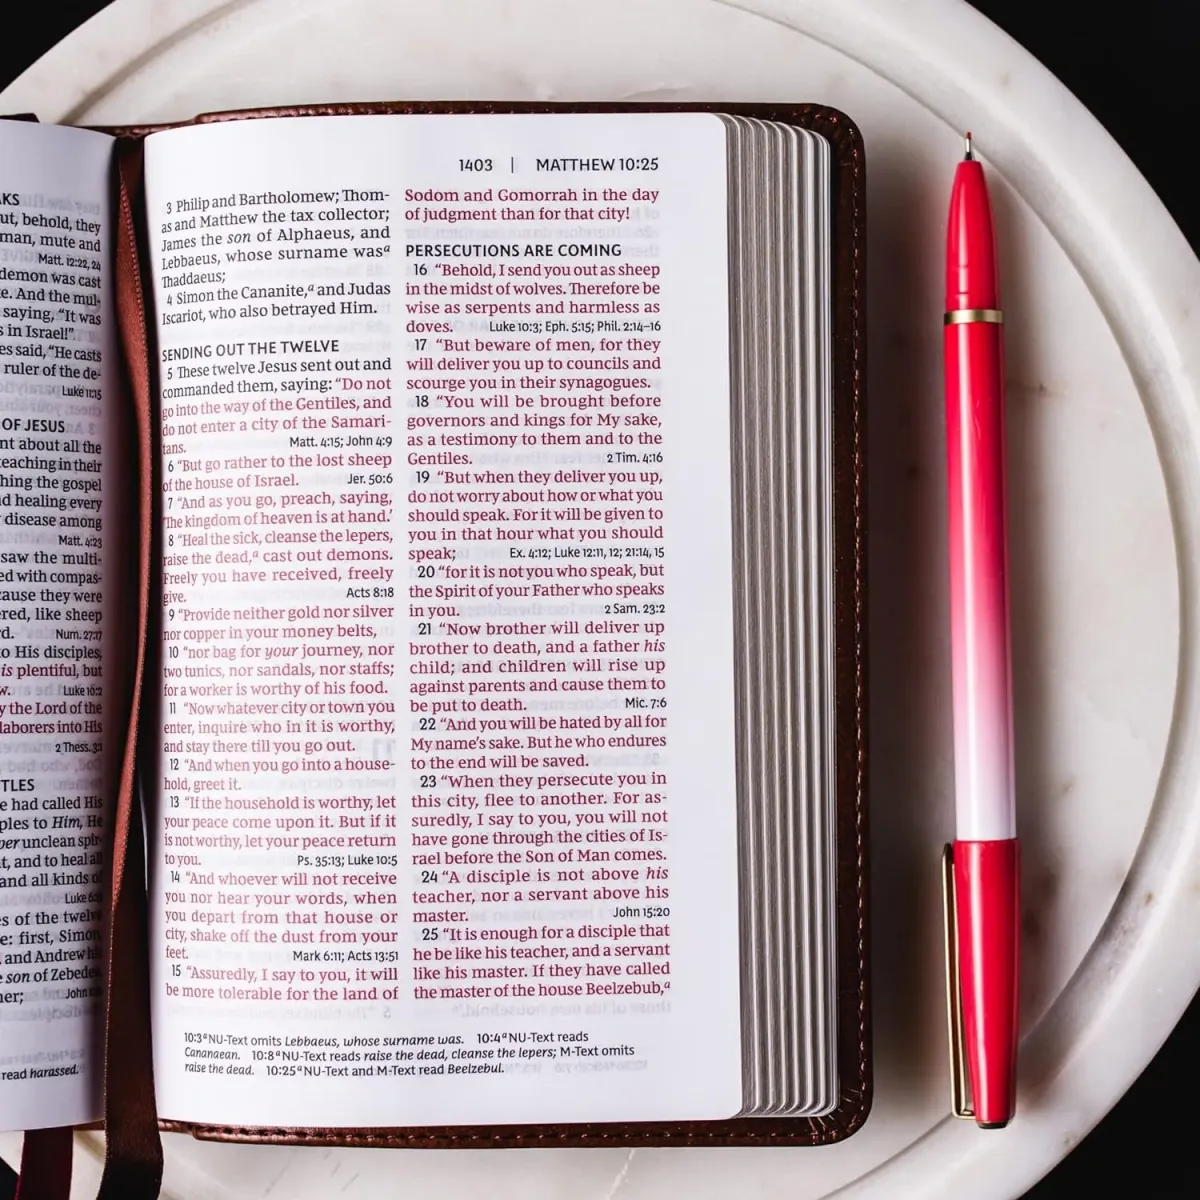 AKS
ut, behold, they
man, mute and
Matt. 12:22, 24
demon was cast
e. And the mul-
saying, “It was
s in Israel!”
es said, “He casts
ruler of the de-
Luke 11:15
OF JESUS
nt about all the
teaching in their
hing the gospel
d healing every
disease among
Matt. 4:23
saw the multi-
ed with compas-
cause they were
ered, like sheep
rd. Num. 27:17
to His disciples,
is plentiful, but
w. Luke 10:2
y the Lord of the
laborers into His
2 Thess. 3:1
TLES
e had called His
ples to Him, He
per unclean spir-
t, and to heal all
and all kinds of
Luke
es of the twelve
e: first, Simon,
and Andrew his
son of Zebedee,
her; John
read harassed.
1403 | MATTHEW 10:25
3 Philip and Bartholomew; Thom-
as and Matthew the tax collector;
James the son of Alphaeus, and
Lebbaeus, whose surname wasᵃ
Thaddaeus;
4 Simon the Cananite,ᵃ and Judas
Iscariot, who also betrayed Him.
SENDING OUT THE TWELVE
5 These twelve Jesus sent out and
commanded them, saying: “Do not
go into the way of the Gentiles, and
do not enter a city of the Samari-
tans. Matt. 4:15; John 4:9
6 “But go rather to the lost sheep
of the house of Israel. Jer. 50:6
7 “And as you go, preach, saying,
‘The kingdom of heaven is at hand.’
8 “Heal the sick, cleanse the lepers,
raise the dead,ᵃ cast out demons.
Freely you have received, freely
give. Acts 8:18
9 “Provide neither gold nor silver
nor copper in your money belts,
10 “nor bag for your journey, nor
two tunics, nor sandals, nor staffs;
for a worker is worthy of his food.
11 “Now whatever city or town you
enter, inquire who in it is worthy,
and stay there till you go out.
12 “And when you go into a house-
hold, greet it.
13 “If the household is worthy, let
your peace come upon it. But if it
is not worthy, let your peace return
to you. Ps. 35:13; Luke 10:5
14 “And whoever will not receive
you nor hear your words, when
you depart from that house or
city, shake off the dust from your
feet. Mark 6:11; Acts 13:51
15 “Assuredly, I say to you, it will
be more tolerable for the land of
Sodom and Gomorrah in the day
of judgment than for that city!
PERSECUTIONS ARE COMING
16 “Behold, I send you out as sheep
in the midst of wolves. Therefore be
wise as serpents and harmless as
doves. Luke 10:3; Eph. 5:15; Phil. 2:14–16
17 “But beware of men, for they
will deliver you up to councils and
scourge you in their synagogues.
18 “You will be brought before
governors and kings for My sake,
as a testimony to them and to the
Gentiles. 2 Tim. 4:16
19 “But when they deliver you up,
do not worry about how or what you
should speak. For it will be given to
you in that hour what you should
speak; Ex. 4:12; Luke 12:11, 12; 21:14, 15
20 “for it is not you who speak, but
the Spirit of your Father who speaks
in you. 2 Sam. 23:2
21 “Now brother will deliver up
brother to death, and a father his
child; and children will rise up
against parents and cause them to
be put to death. Mic. 7:6
22 “And you will be hated by all for
My name’s sake. But he who endures
to the end will be saved.
23 “When they persecute you in
this city, flee to another. For as-
suredly, I say to you, you will not
have gone through the cities of Is-
rael before the Son of Man comes.
24 “A disciple is not above his
teacher, nor a servant above his
master. John 15:20
25 “It is enough for a disciple that
he be like his teacher, and a servant
like his master. If they have called
the master of the house Beelzebub,ᵃ
10:3ᵃNU-Text omits Lebbaeus, whose surname was. 10:4ᵃNU-Text reads
Cananaean. 10:8ᵃNU-Text reads raise the dead, cleanse the lepers; M-Text omits
raise the dead. 10:25ᵃNU-Text and M-Text read Beelzebul.